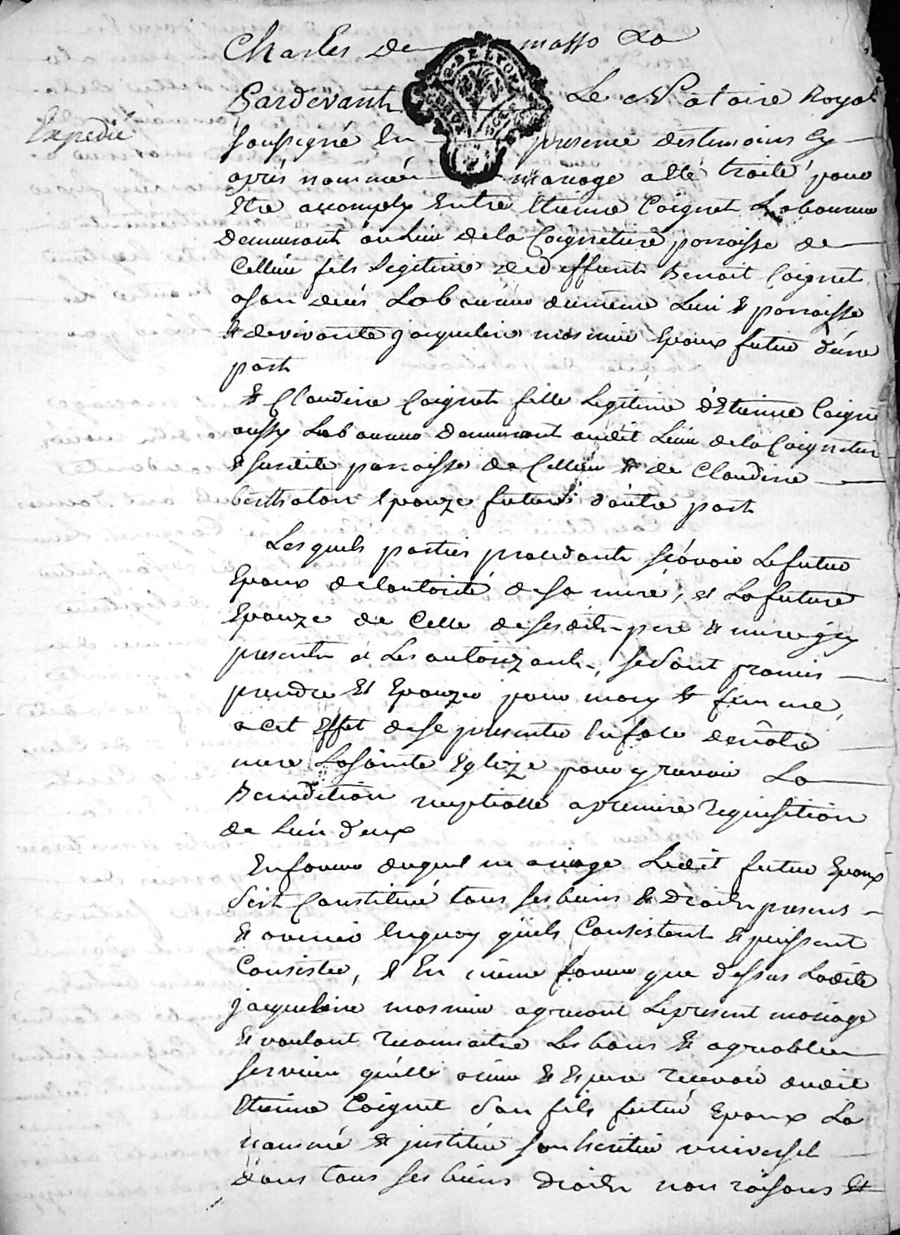 Charles de masso La
Pardevant Le Notaire Royal
Expedié
soussigné En presence des temoins Cy
aprés nommés mariage a été traité pour
Etre accomply Entre Etienne Coignet Laboureur
demeurant au Lieu de la Coigneture parroisse de
Cellieu fils Legitime de deffunt Benoit Coignet
a son vivant Laboureur du meme Lieu & parroisse
& de vivante jacqueline Epoux futur d'une
part
& Claudine Coignet fille Legitime d'Etienne Coignet
aussy Laboureur demeurant audit Lieu de la Coigneture
& susdite parroisse de Cellieu & de Claudine
bertholon Epouze future d'autre part
Lesquels parties procedants sçavoir Le futur
Epoux de l'autorité de sa mere, et La future
Epouze de Celle de sesdits pere & mere icy
presents et Les autorizants, se sont promis
prendre Et Epouzer pour mary & femme,
a cet Effet de se presenter En face de nôtre
mere La sainte Eglize pour y recevoir La
Benediction nuptialle a premiere requisition
de L'un d'eux
En faveur duquel mariage Ledit futur Epoux
s'est Constitué tous ses biens & droits presens
& avenir En quoy qu'ils Consistent & puissent
Consister, & En même faveur que dessus Ladite
jacqueline agreant Le present mariage
& voulant reconnaitre Les bons & agreables
services qu'elle a reçu & Espere recevoir dudit
Etienne Coignet son fils futur Epoux La
nommé & institué son heritier universel
dans tous ses biens droits noms raisons Et